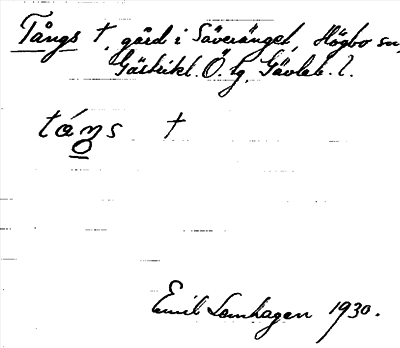 Tångs †, gård i Säveränget, Högbo sn,
Gästrikl. Ö. tg, Gävleb. l.
táŋs †
o
Emil Lomhagen 1930.